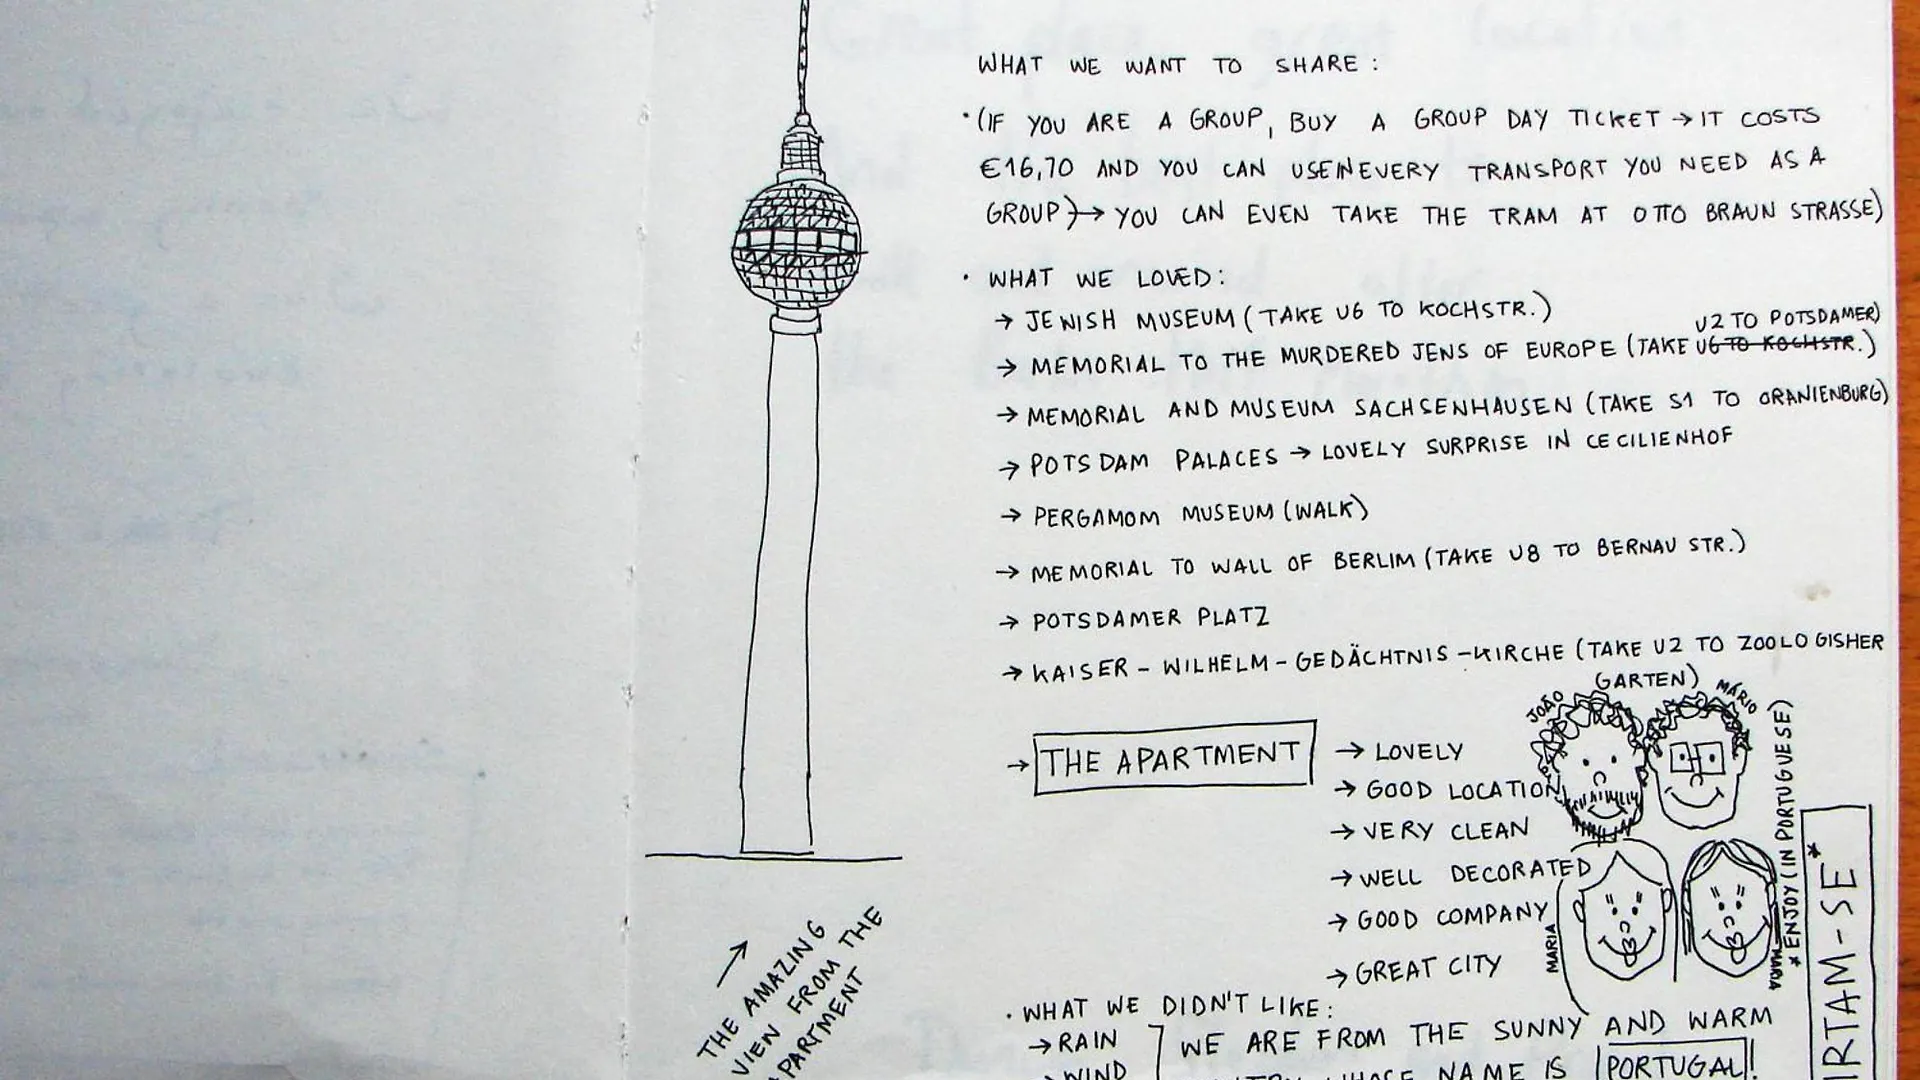 WHAT WE WANT TO SHARE:
• (IF YOU ARE A GROUP, BUY A GROUP DAY TICKET → IT COSTS
€16,70 AND YOU CAN USE IN EVERY TRANSPORT YOU NEED AS A
GROUP) → YOU CAN EVEN TAKE THE TRAM AT OTTO BRAUN STRASSE)
• WHAT WE LOVED:
→ JEWISH MUSEUM (TAKE U6 TO KOCHSTR.)
U2 TO POTSDAMER)
→ MEMORIAL TO THE MURDERED JENS OF EUROPE (TAKE U6 TO KOCHSTR.)
→ MEMORIAL AND MUSEUM SACHSENHAUSEN (TAKE S1 TO ORANIENBURG)
→ POTSDAM PALACES → LOVELY SURPRISE IN CECILIENHOF
→ PERGAMOM MUSEUM (WALK)
→ MEMORIAL TO WALL OF BERLIM (TAKE U8 TO BERNAU STR.)
→ POTSDAMER PLATZ
→ KAISER-WILHELM-GEDÄCHTNIS-KIRCHE (TAKE U2 TO ZOOLOGISHER
GARTEN)
JOÃO
MÁRIO
→ THE APARTMENT → LOVELY
→ GOOD LOCATION
→ VERY CLEAN
→ WELL DECORATED
→ GOOD COMPANY
→ GREAT CITY
MARIA
* ENJOY (IN PORTUGUESE)
IRTAM-SE*
• WHAT WE DIDN'T LIKE:
→ RAIN
→ WIND
WE ARE FROM THE SUNNY AND WARM
WHOSE NAME IS PORTUGAL!
THE AMAZING
VIEN FROM THE
APARTMENT